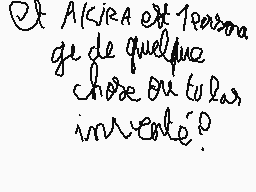 Et AKiRA est 1 persona
ge de quelque
chose ou tu las
inventé?